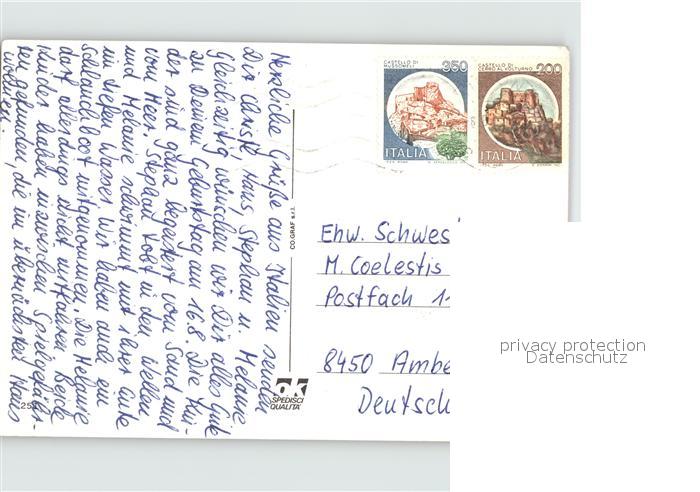 Herzliche Grüße aus Italien senden
Dir Christl, Hans, Stephan u. Melanie.
Gleichzeitig wünschen wir Dir alles Gute
zu Deinem Geburtstag am 16.8. Die Kin-
der sind ganz begeistert vom Sand und
vom Meer. Stephan tobt in den Wellen
und Melanie schwimmt mit ihrer Ente
im tiefen Wasser. Wir haben auch ein
Schlauchboot mitgenommen. Die Melanie
darf allerdings nicht mitfahren. Beide
Kinder haben inzwischen Spielgefähr-
ten gefunden, die im übernächsten Haus
wohnen.
CO.GRAF s.r.l.
ok
SPEDISCI
QUALITA'
25
CASTELLO DI
MUSSOMELI
350
ITALIA
CASTELLO DI
CERRO AL VOLTURNO
200
ITALIA
Ehw. Schwes
M. Coelestis
Postfach 1
8450 Ambe
Deutsch
privacy protection
Datenschutz